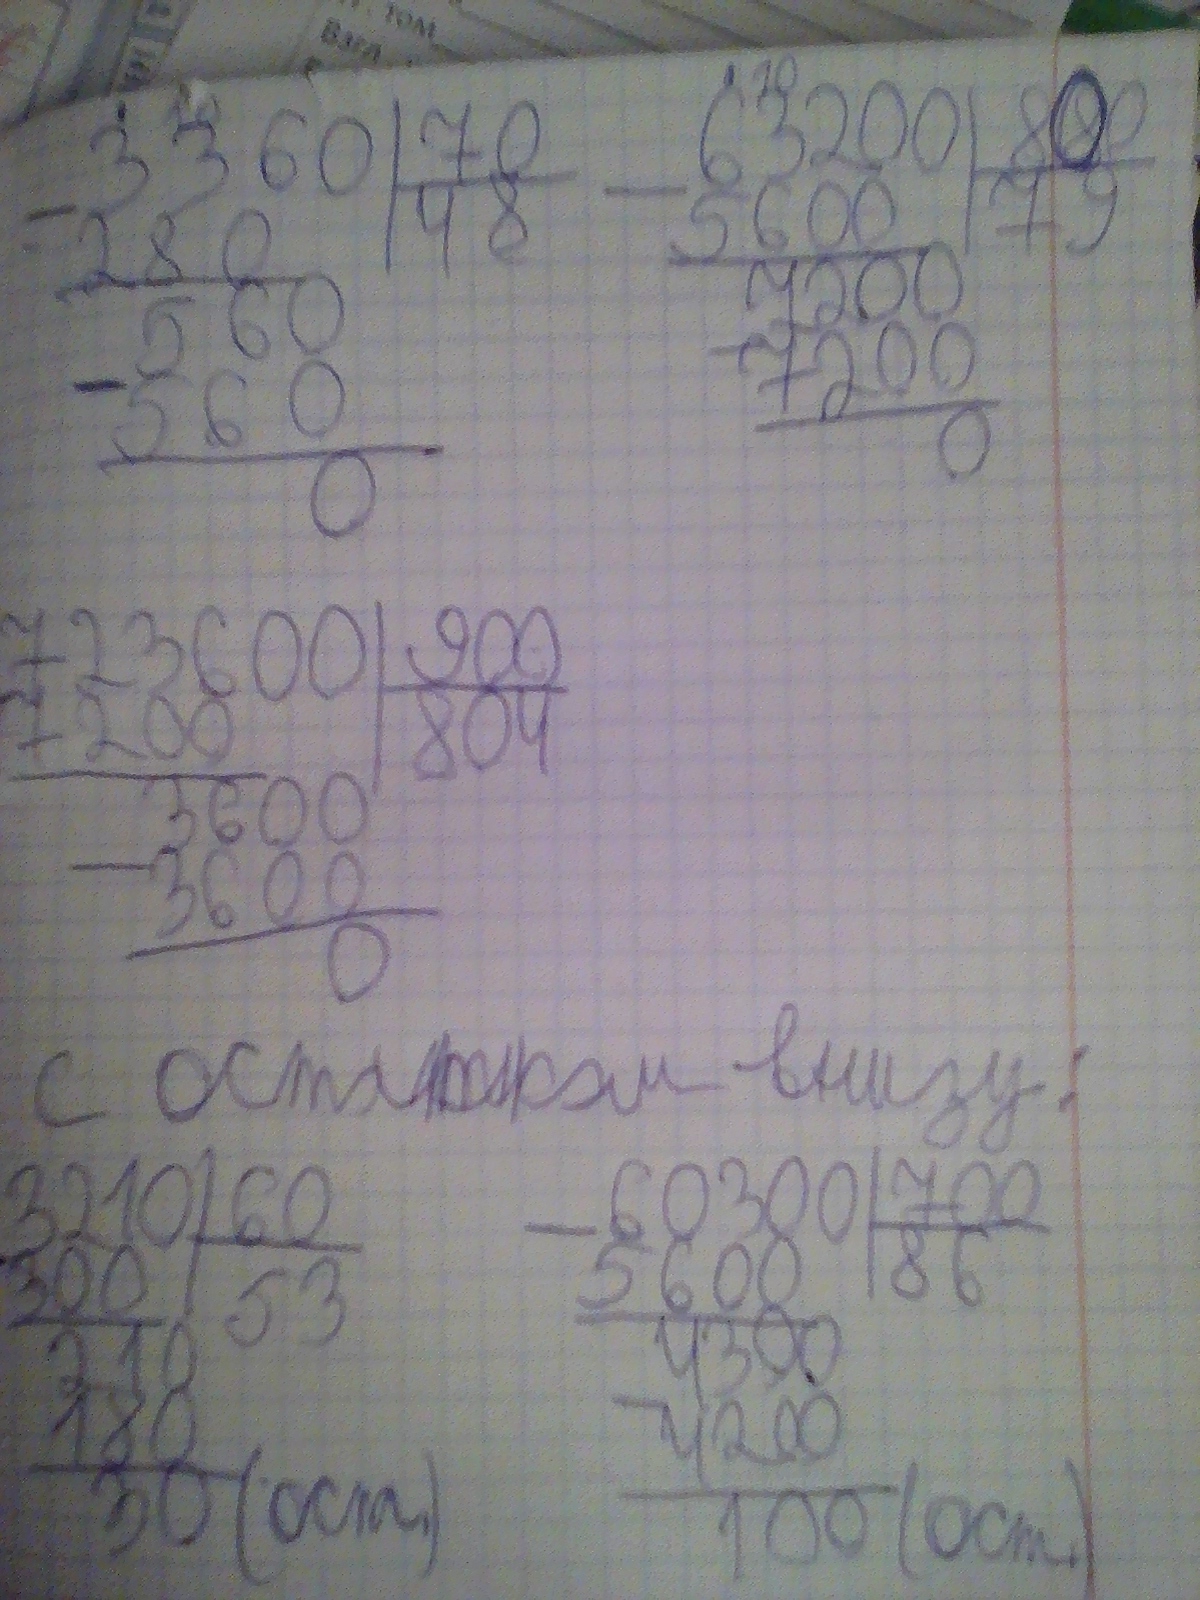 ТОМ
ВЗГЛ
10 10
3360 70
- 280 48
560
- 560
0
63200 800
- 5600 79
7200
- 7200
0
723600 900
7200 804
3600
- 3600
0
с остатком внизу:
3210 60
300 53
210
180
30 (ост.)
- 60300 700
5600 86
4300
- 4200
100 (ост.)